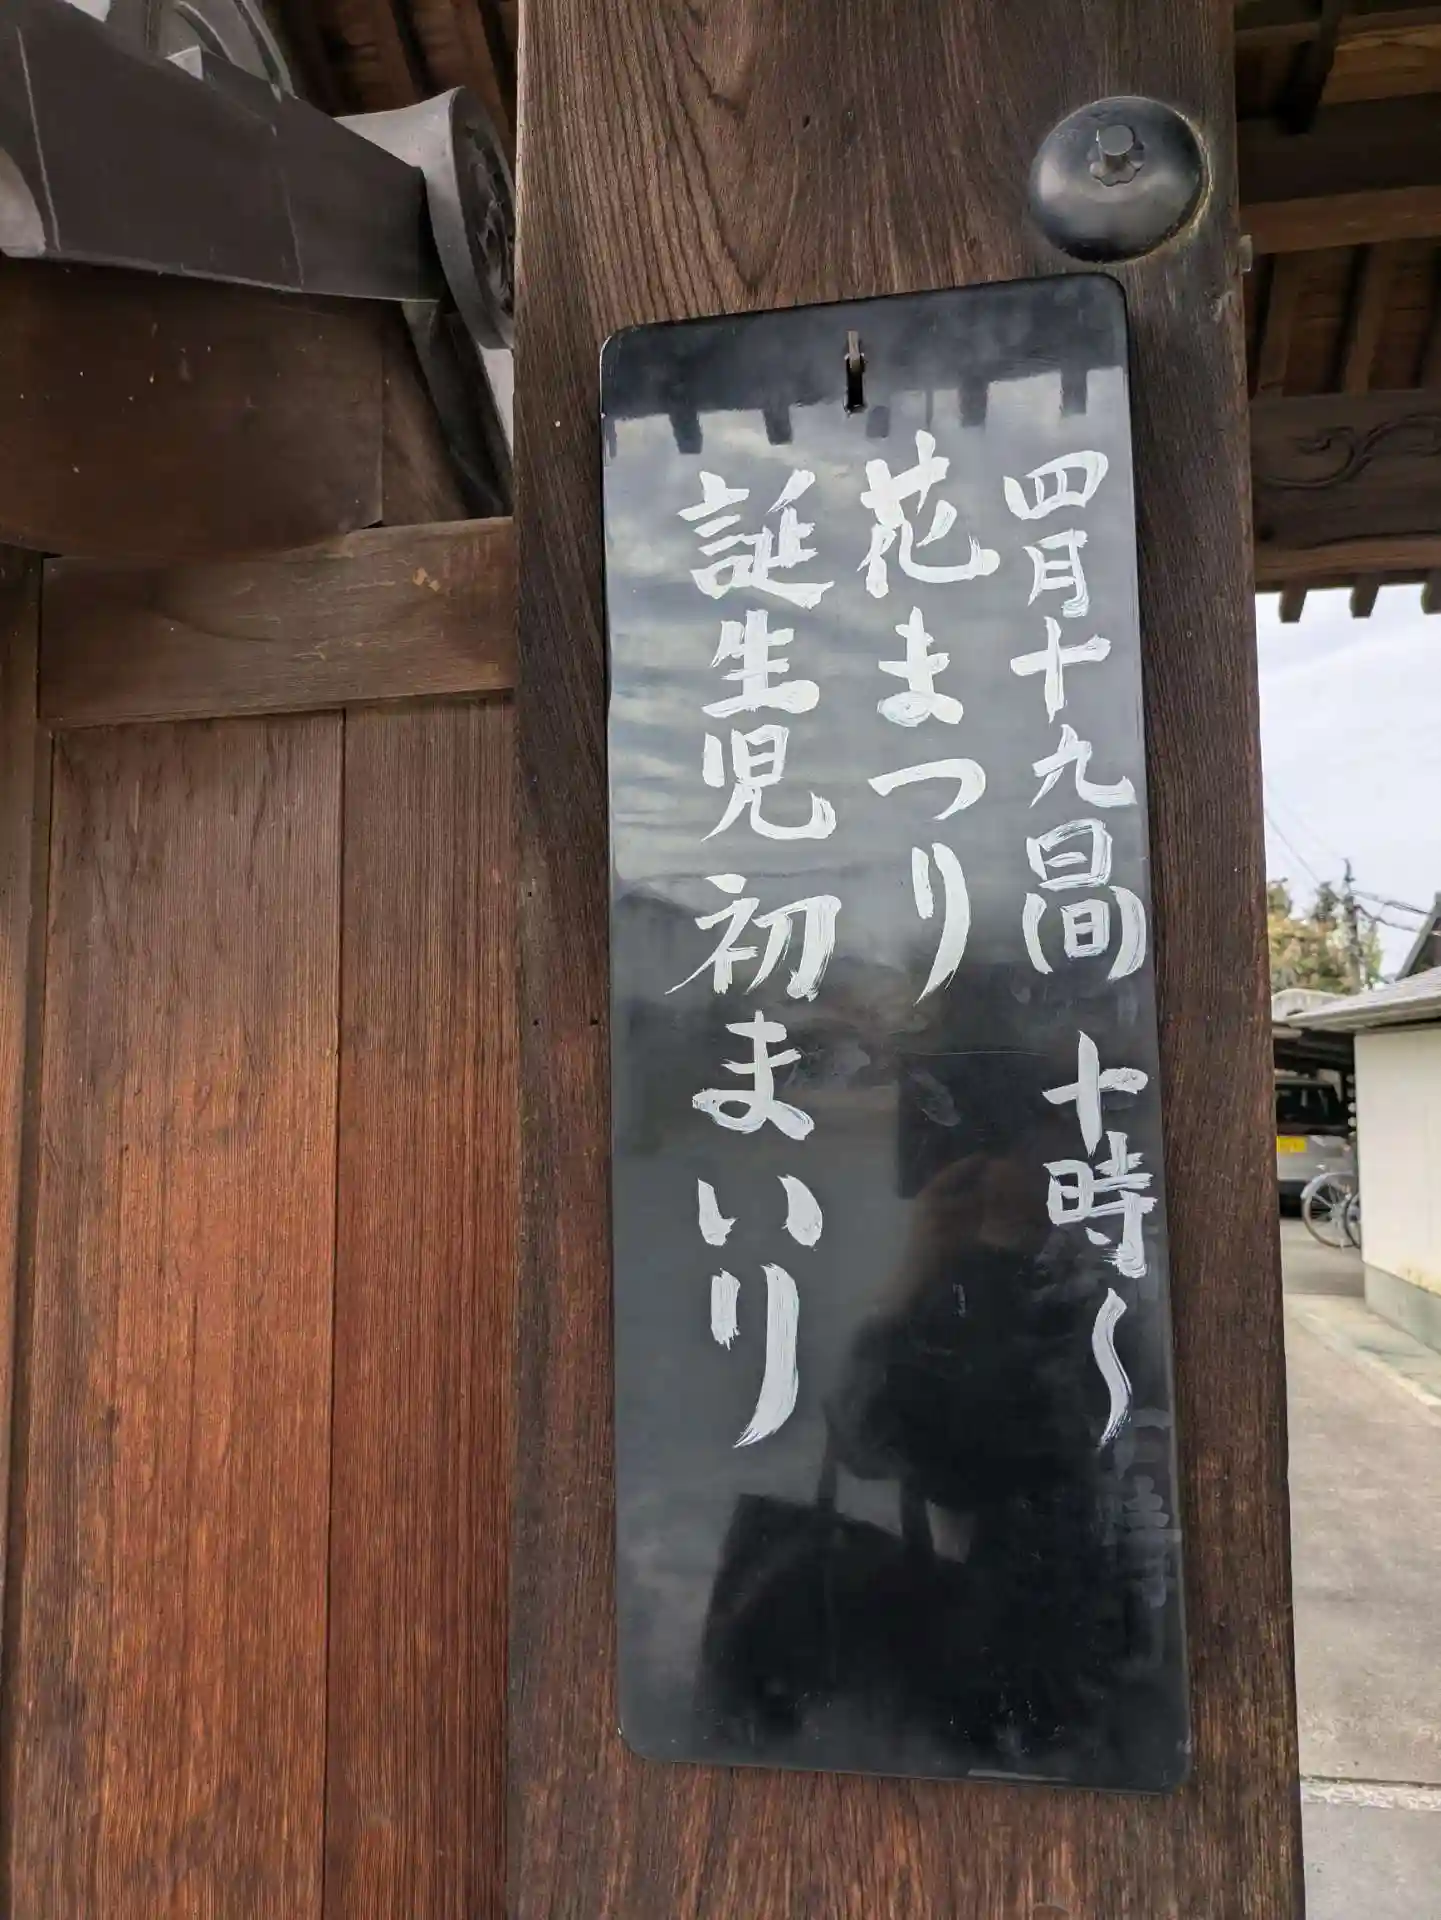 四月十九日(日) 十時〜
花まつり
誕生児初まいり